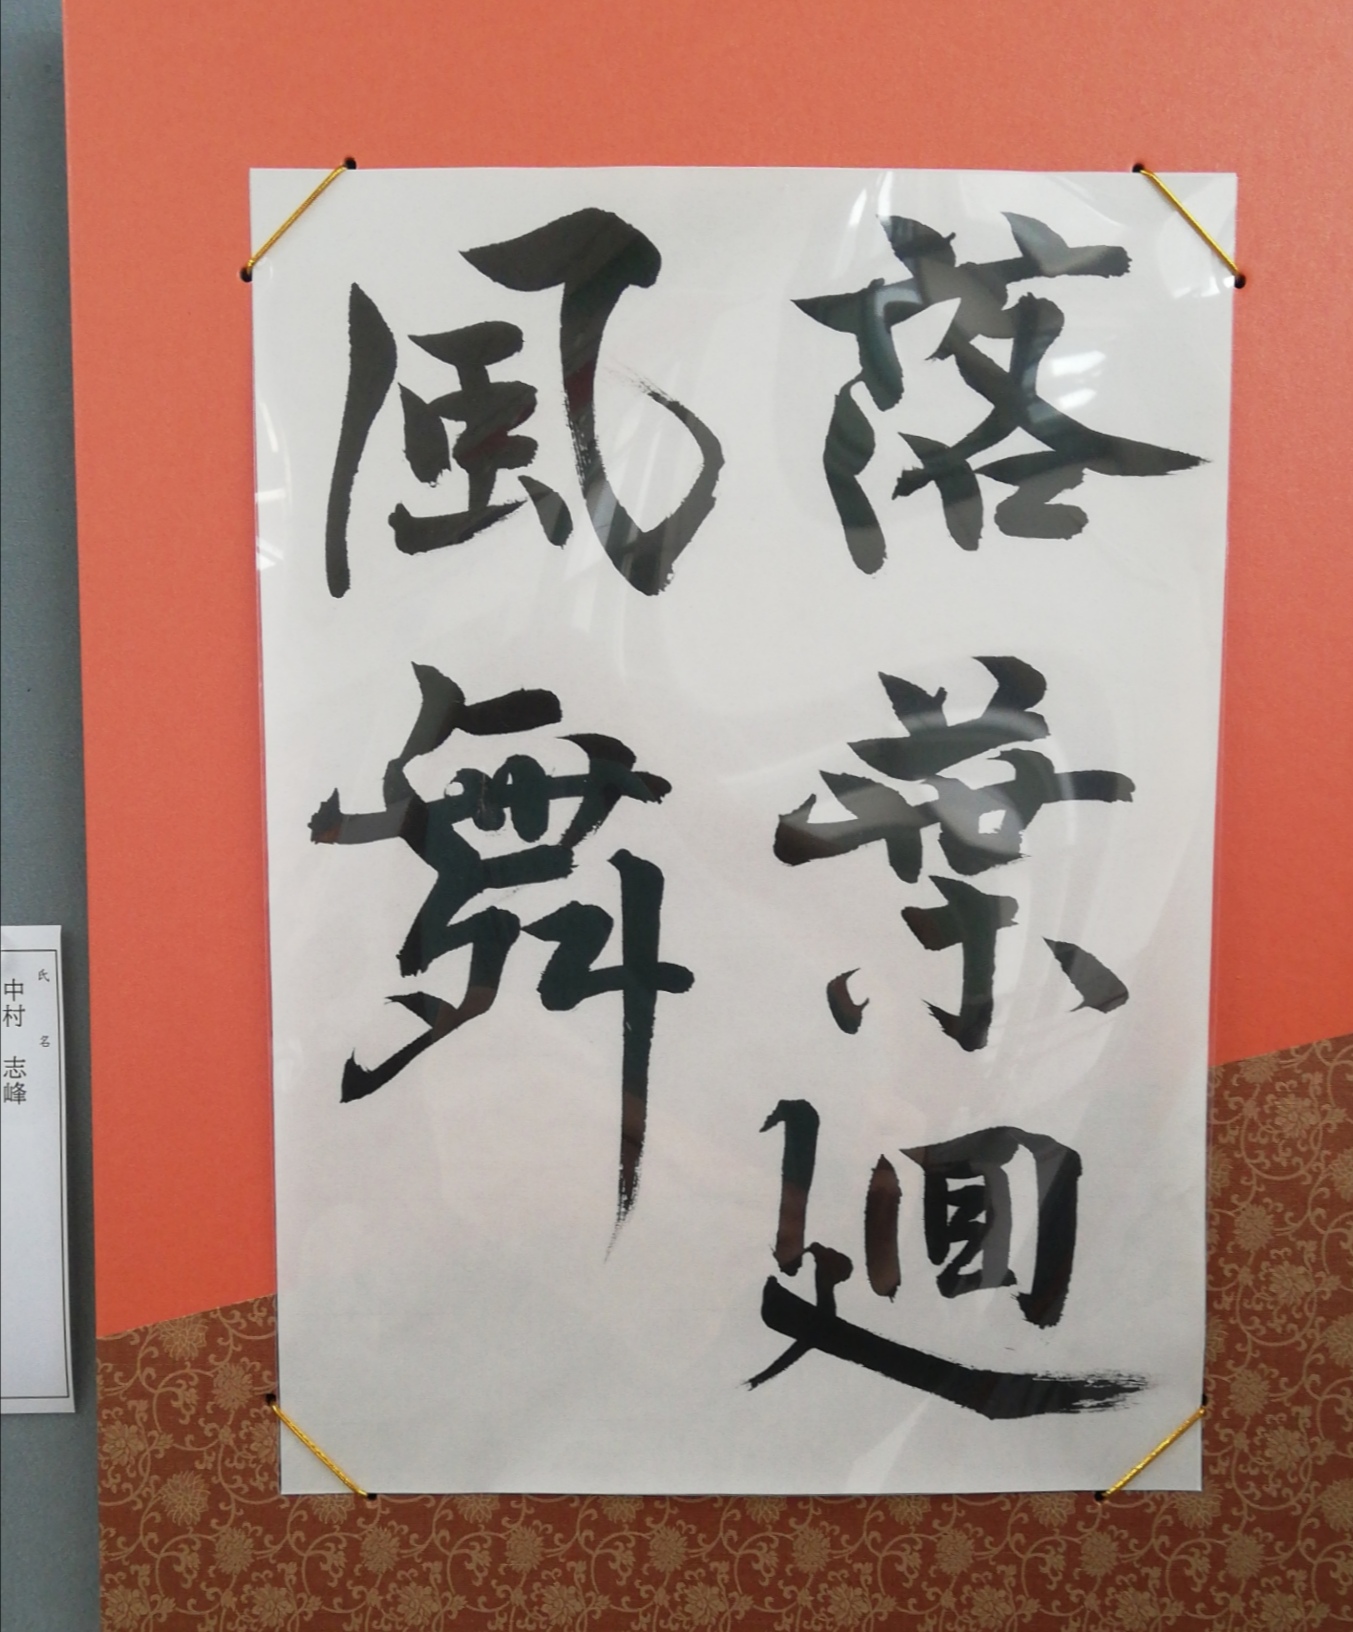 落葉廻
風舞
氏名
中村 志峰